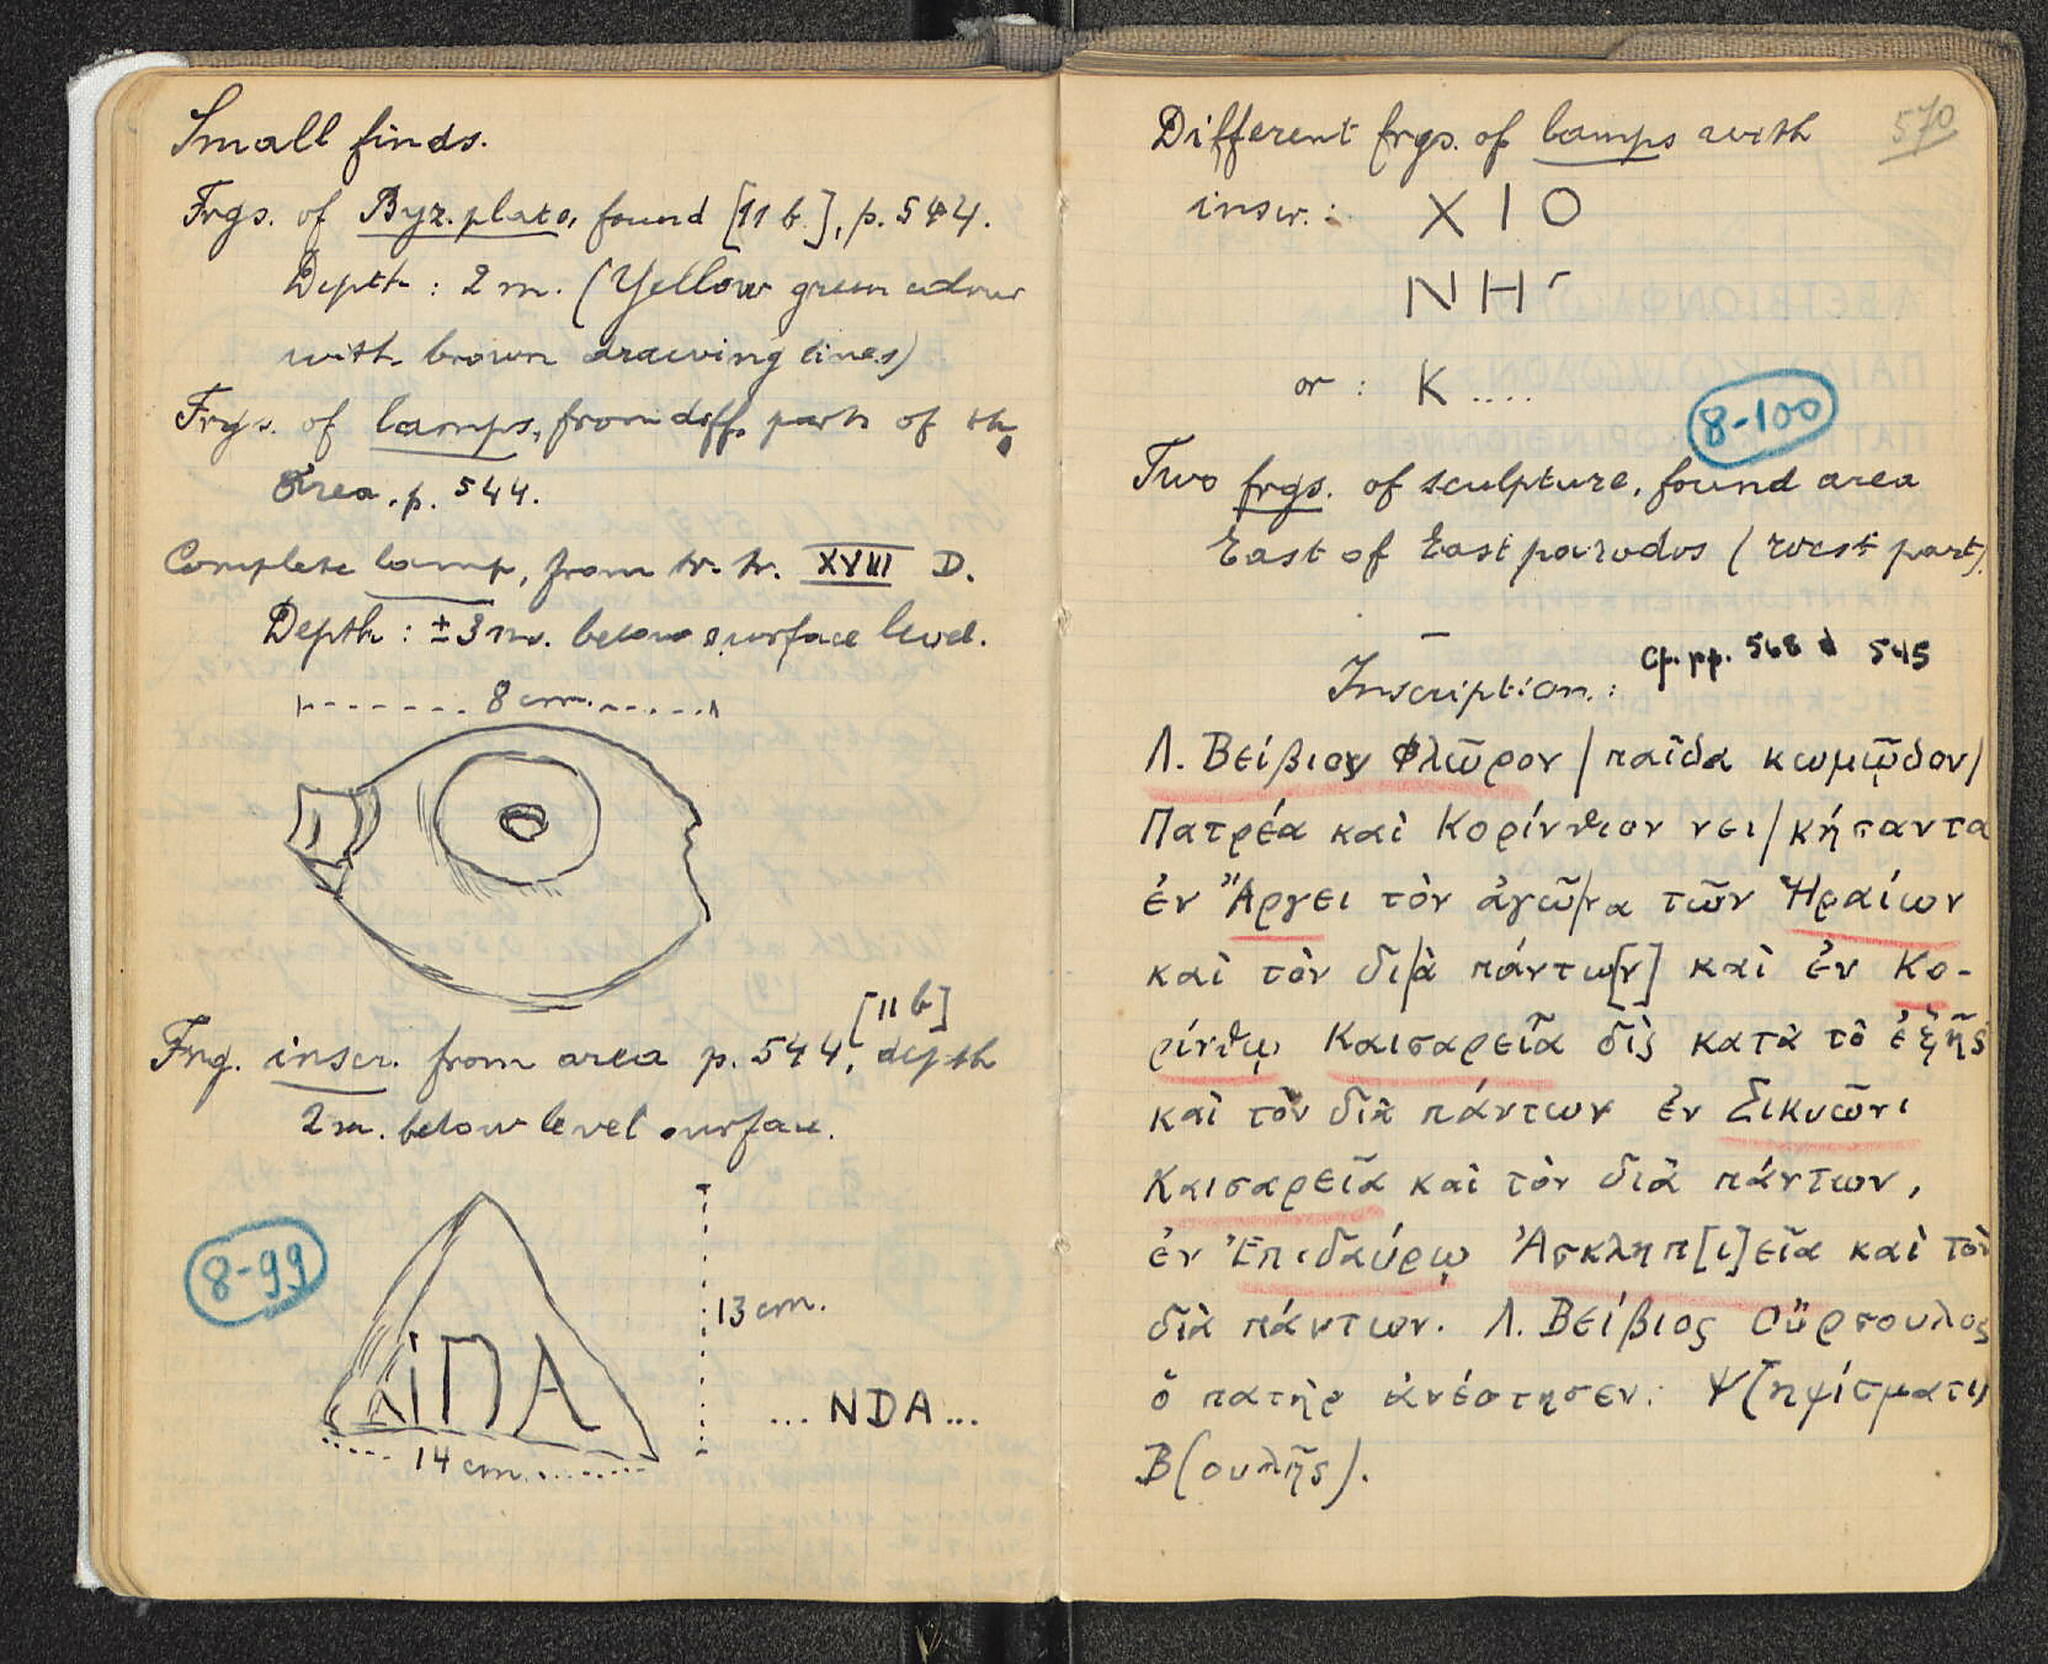 Small finds.
Frgs. of Byz. plate, found [11 b], p. 544.
Depth : 2 m. (Yellow green colour
with brown drawing lines)
Frgs. of lamps, from diff. parts of the
area, p. 544.
Complete lamp, from XVIII D.
Depth : ± 3 m. below surface level.
8 cm.
[11 b]
Frg. inscr. from area p. 544, depth
2 m. below level surface.
8-99
13 cm.
NDA
... NDA ...
14 cm.
570
Different frgs. of lamps with
inscr. : X I O
N H
or : K ....
8-100
Two frgs. of sculpture, found area
East of East parodos (West part).
Cf. pp. 568 545
Inscription :
Λ. Βείβιον Φλῶρον / παῖδα κωμῳδον /
Πατρέα καὶ Κορίνθιον νει/κήσαντα
ἐν Ἄργει τὸν ἀγῶ/να τῶν Ἡραίων
καὶ τὸν δι/ὰ πάντω[ν] καὶ ἐν Κο-
ρίνθῳ Καισαρεῖα δὶς κατὰ τὸ ἑξῆς
καὶ τὸν διὰ πάντων ἐν Σικυῶνι
Καισαρεῖα καὶ τὸν διὰ πάντων,
ἐν Ἐπιδαύρῳ Ἀσκληπ[ι]εῖα καὶ τὸν
διὰ πάντων. Λ. Βείβιος Οὔρσουλος
ὁ πατὴρ ἀνέστησεν. Ψ(ηφίσματι)
Β(ουλῆς).